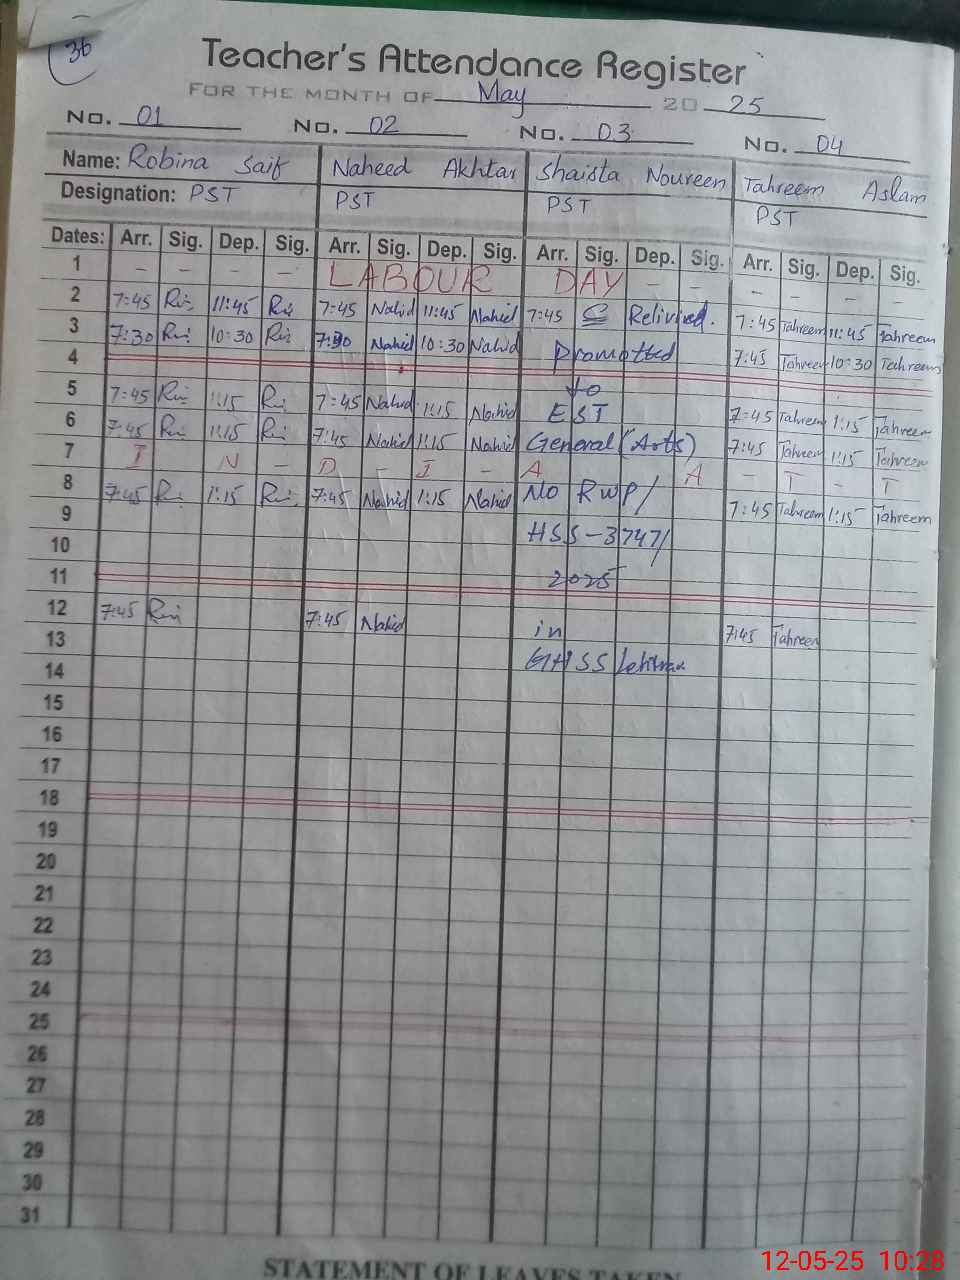 36
Teacher's Attendance Register
FOR THE MONTH OF May 20 25
No. 01 No. 02 No. 03 No. 04
Name: Robina Saif Naheed Akhtar Shaista Noureen Tahreem Aslam
Designation: PST PST PST PST
Dates: Arr. Sig. Dep. Sig. Arr. Sig. Dep. Sig. Arr. Sig. Dep. Sig. Arr. Sig. Dep. Sig.
1 - - - - LABOUR DAY - - - - - -
2 7:45 11:45 7:45 Nahid 11:45 Nahid 7:45 Relivived. 7:45 Tahreem 11:45 Tahreem
3 7:30 10:30 7:30 Nahid 10:30 Nahid Promotted 7:45 Tahreem 10:30 Tahreem
4 to
5 7:45 1:15 7:45 Nahid 1:15 Nahid EST 7:45 Tahreem 1:15 Tahreem
6 7:45 1:15 7:45 Nahid 1:15 Nahid General (Arts) 7:45 Tahreem 1:15 Tahreem
7 I N - D - I - A A - T - T
8 7:45 1:15 7:45 Nahid 1:15 Nahid No RWP/ 7:45 Tahreem 1:15 Tahreem
9 HSS-3747/
10 2025
11
12 7:45 7:45 Nahid in 7:45 Tahreem
13 GHSS
14
15
16
17
18
19
20
21
22
23
24
25
26
27
28
29
30
31
STATEMENT OF LEAVES TAKEN
12-05-25 10:28